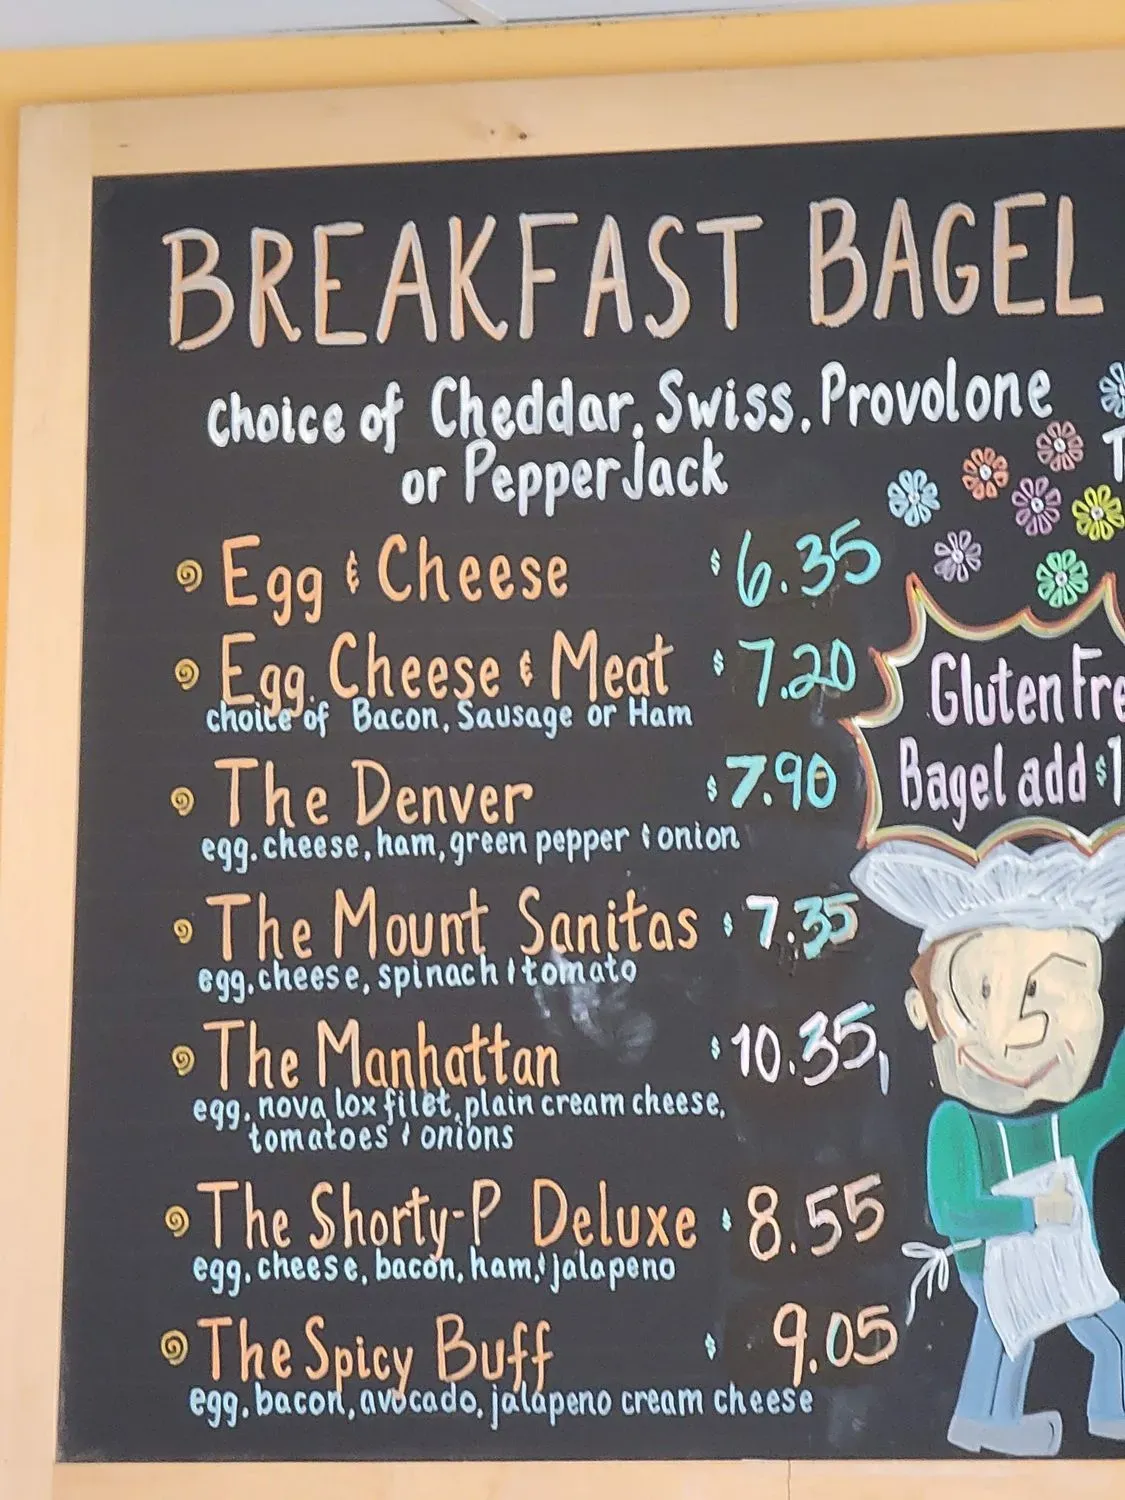 BREAKFAST BAGEL
Choice of Cheddar, Swiss, Provolone
or Pepper Jack
Egg & Cheese $ 6.35
Egg, Cheese & Meat $ 7.20
choice of Bacon, Sausage or Ham
The Denver $ 7.90
egg, cheese, ham, green pepper & onion
The Mount Sanitas $ 7.35
egg, cheese, spinach & tomato
The Manhattan $ 10.35
egg, nova lox filet, plain cream cheese,
tomatoes & onions
The Shorty-P Deluxe $ 8.55
egg, cheese, bacon, ham, & jalapeno
The Spicy Buff $ 9.05
egg, bacon, avocado, jalapeno cream cheese
Gluten Fre
Bagel add $1